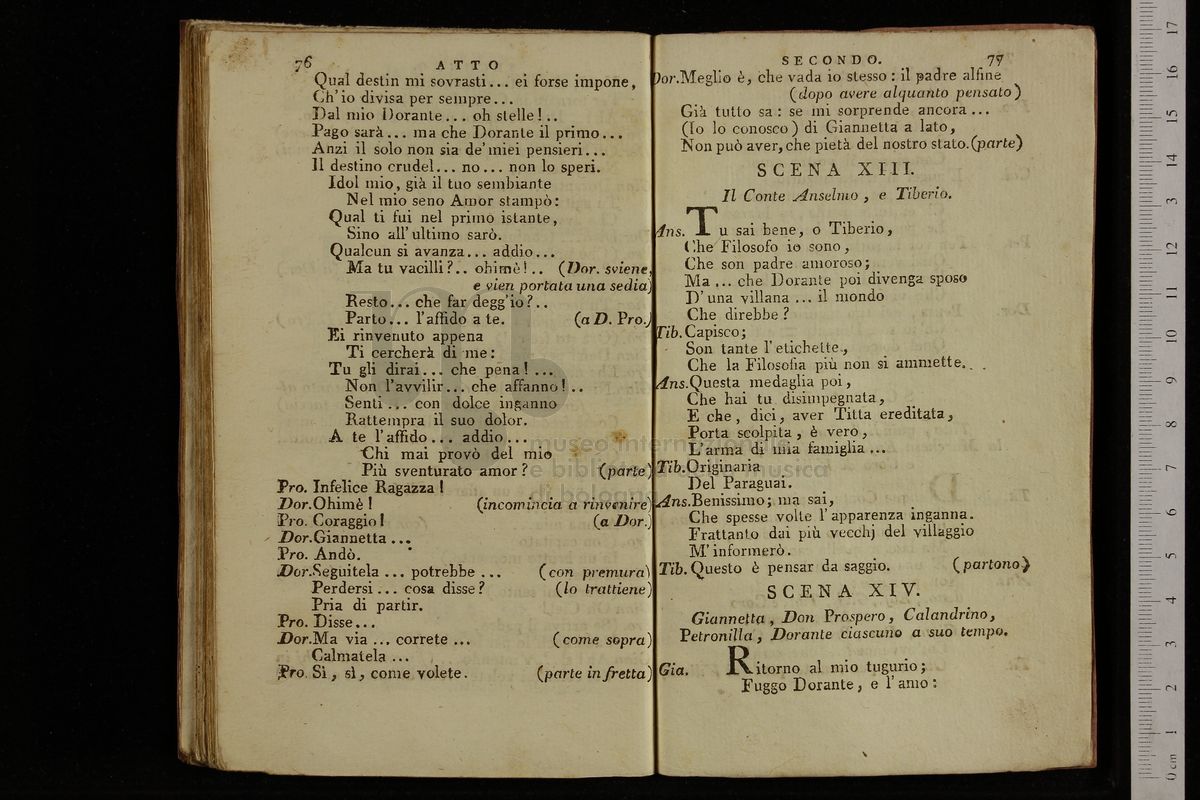 76 ATTO
Qual destin mi sovrasti... ei forse impone,
Ch'io divisa per sempre...
Dal mio Dorante... oh stelle!..
Pago sarà... ma che Dorante il primo...
Anzi il solo non sia de' miei pensieri...
Il destino crudel... no... non lo speri.
Idol mio, già il tuo sembiante
Nel mio seno Amor stampò:
Qual ti fui nel primo istante,
Sino all' ultimo sarò.
Qualcun si avanza... addio...
Ma tu vacilli?.. ohimè!.. (Dor. sviene,
e vien portata una sedia)
Resto... che far degg'io?..
Parto... l'affido a te. (a D. Pro.)
Ei rinvenuto appena
Ti cercherà di me:
Tu gli dirai... che pena!...
Non l'avvilir... che affanno!..
Senti... con dolce inganno
Rattempra il suo dolor.
A te l'affido... addio...
Chi mai provò del mio
Più sventurato amor? (parte)
Pro. Infelice Ragazza!
Dor. Ohimè! (incomincia a rinvenire)
Pro. Coraggio! (a Dor.)
Dor. Giannetta...
Pro. Andò.
Dor. Seguitela... potrebbe... (con premura)
Perdersi... cosa disse? (lo trattiene)
Pria di partir.
Pro. Disse...
Dor. Ma via... correte... (come sopra)
Calmatela...
Pro. Sì, sì, come volete. (parte in fretta)
SECONDO. 77
Dor. Meglio è, che vada io stesso: il padre alfine
(dopo avere alquanto pensato)
Già tutto sa: se mi sorprende ancora...
(Io lo conosco) di Giannetta a lato,
Non può aver, che pietà del nostro stato. (parte)
SCENA XIII.
Il Conte Anselmo, e Tiberio.
Ans. Tu sai bene, o Tiberio,
Che Filosofo io sono,
Che son padre amoroso;
Ma... che Dorante poi divenga sposo
D'una villana... il mondo
Che direbbe?
Tib. Capisco;
Son tante l'etichette,
Che la Filosofia più non si ammette...
Ans. Questa medaglia poi,
Che hai tu disimpegnata,
E che, dici, aver Titta ereditata,
Porta scolpita, è vero,
L'arma di mia famiglia...
Tib. Originaria
Del Paraguai.
Ans. Benissimo; ma sai,
Che spesse volte l'apparenza inganna.
Frattanto dai più vecchj del villaggio
M'informerò.
Tib. Questo è pensar da saggio. (partono)
SCENA XIV.
Giannetta, Don Prospero, Calandrino,
Petronilla, Dorante ciascuno a suo tempo.
Gia. Ritorno al mio tugurio;
Fuggo Dorante, e l'amo:
museo internazionale
e biblioteca della musica
di bologna
0 cm 1 2 3 4 5 6 7 8 9 10 11 12 13 14 15 16 17